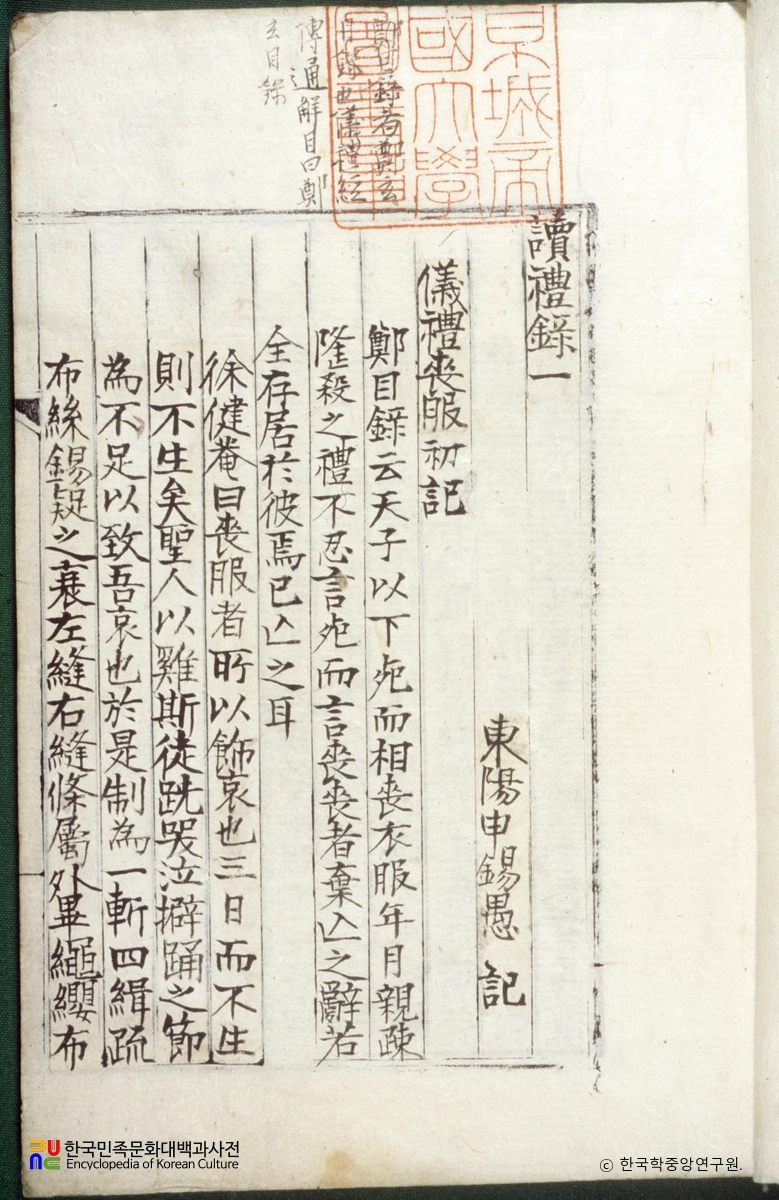 鄭目錄者鄭玄
目錄也儀禮經
傳通解目曰鄭
玄目錄
京城帝
國大學
圖書章
讀禮錄一
東陽申錫愚 記
儀禮喪服 初記
鄭目錄云天子以下死而相喪衣服年月親疎
隆殺之禮不忍言死而言喪喪者棄亾之辭若
全存居於彼焉已亾之耳
徐健菴曰喪服者所以飾哀也三日而不生
則不生矣聖人以雞斯徒跣哭泣擗踊之節
為不足以致吾哀也於是制為一斬四緝疏
布絲錫疑之衰左縫右縫條屬外畢繩纓布
한국민족문화대백과사전
Encyclopedia of Korean Culture
ⓒ 한국학중앙연구원.